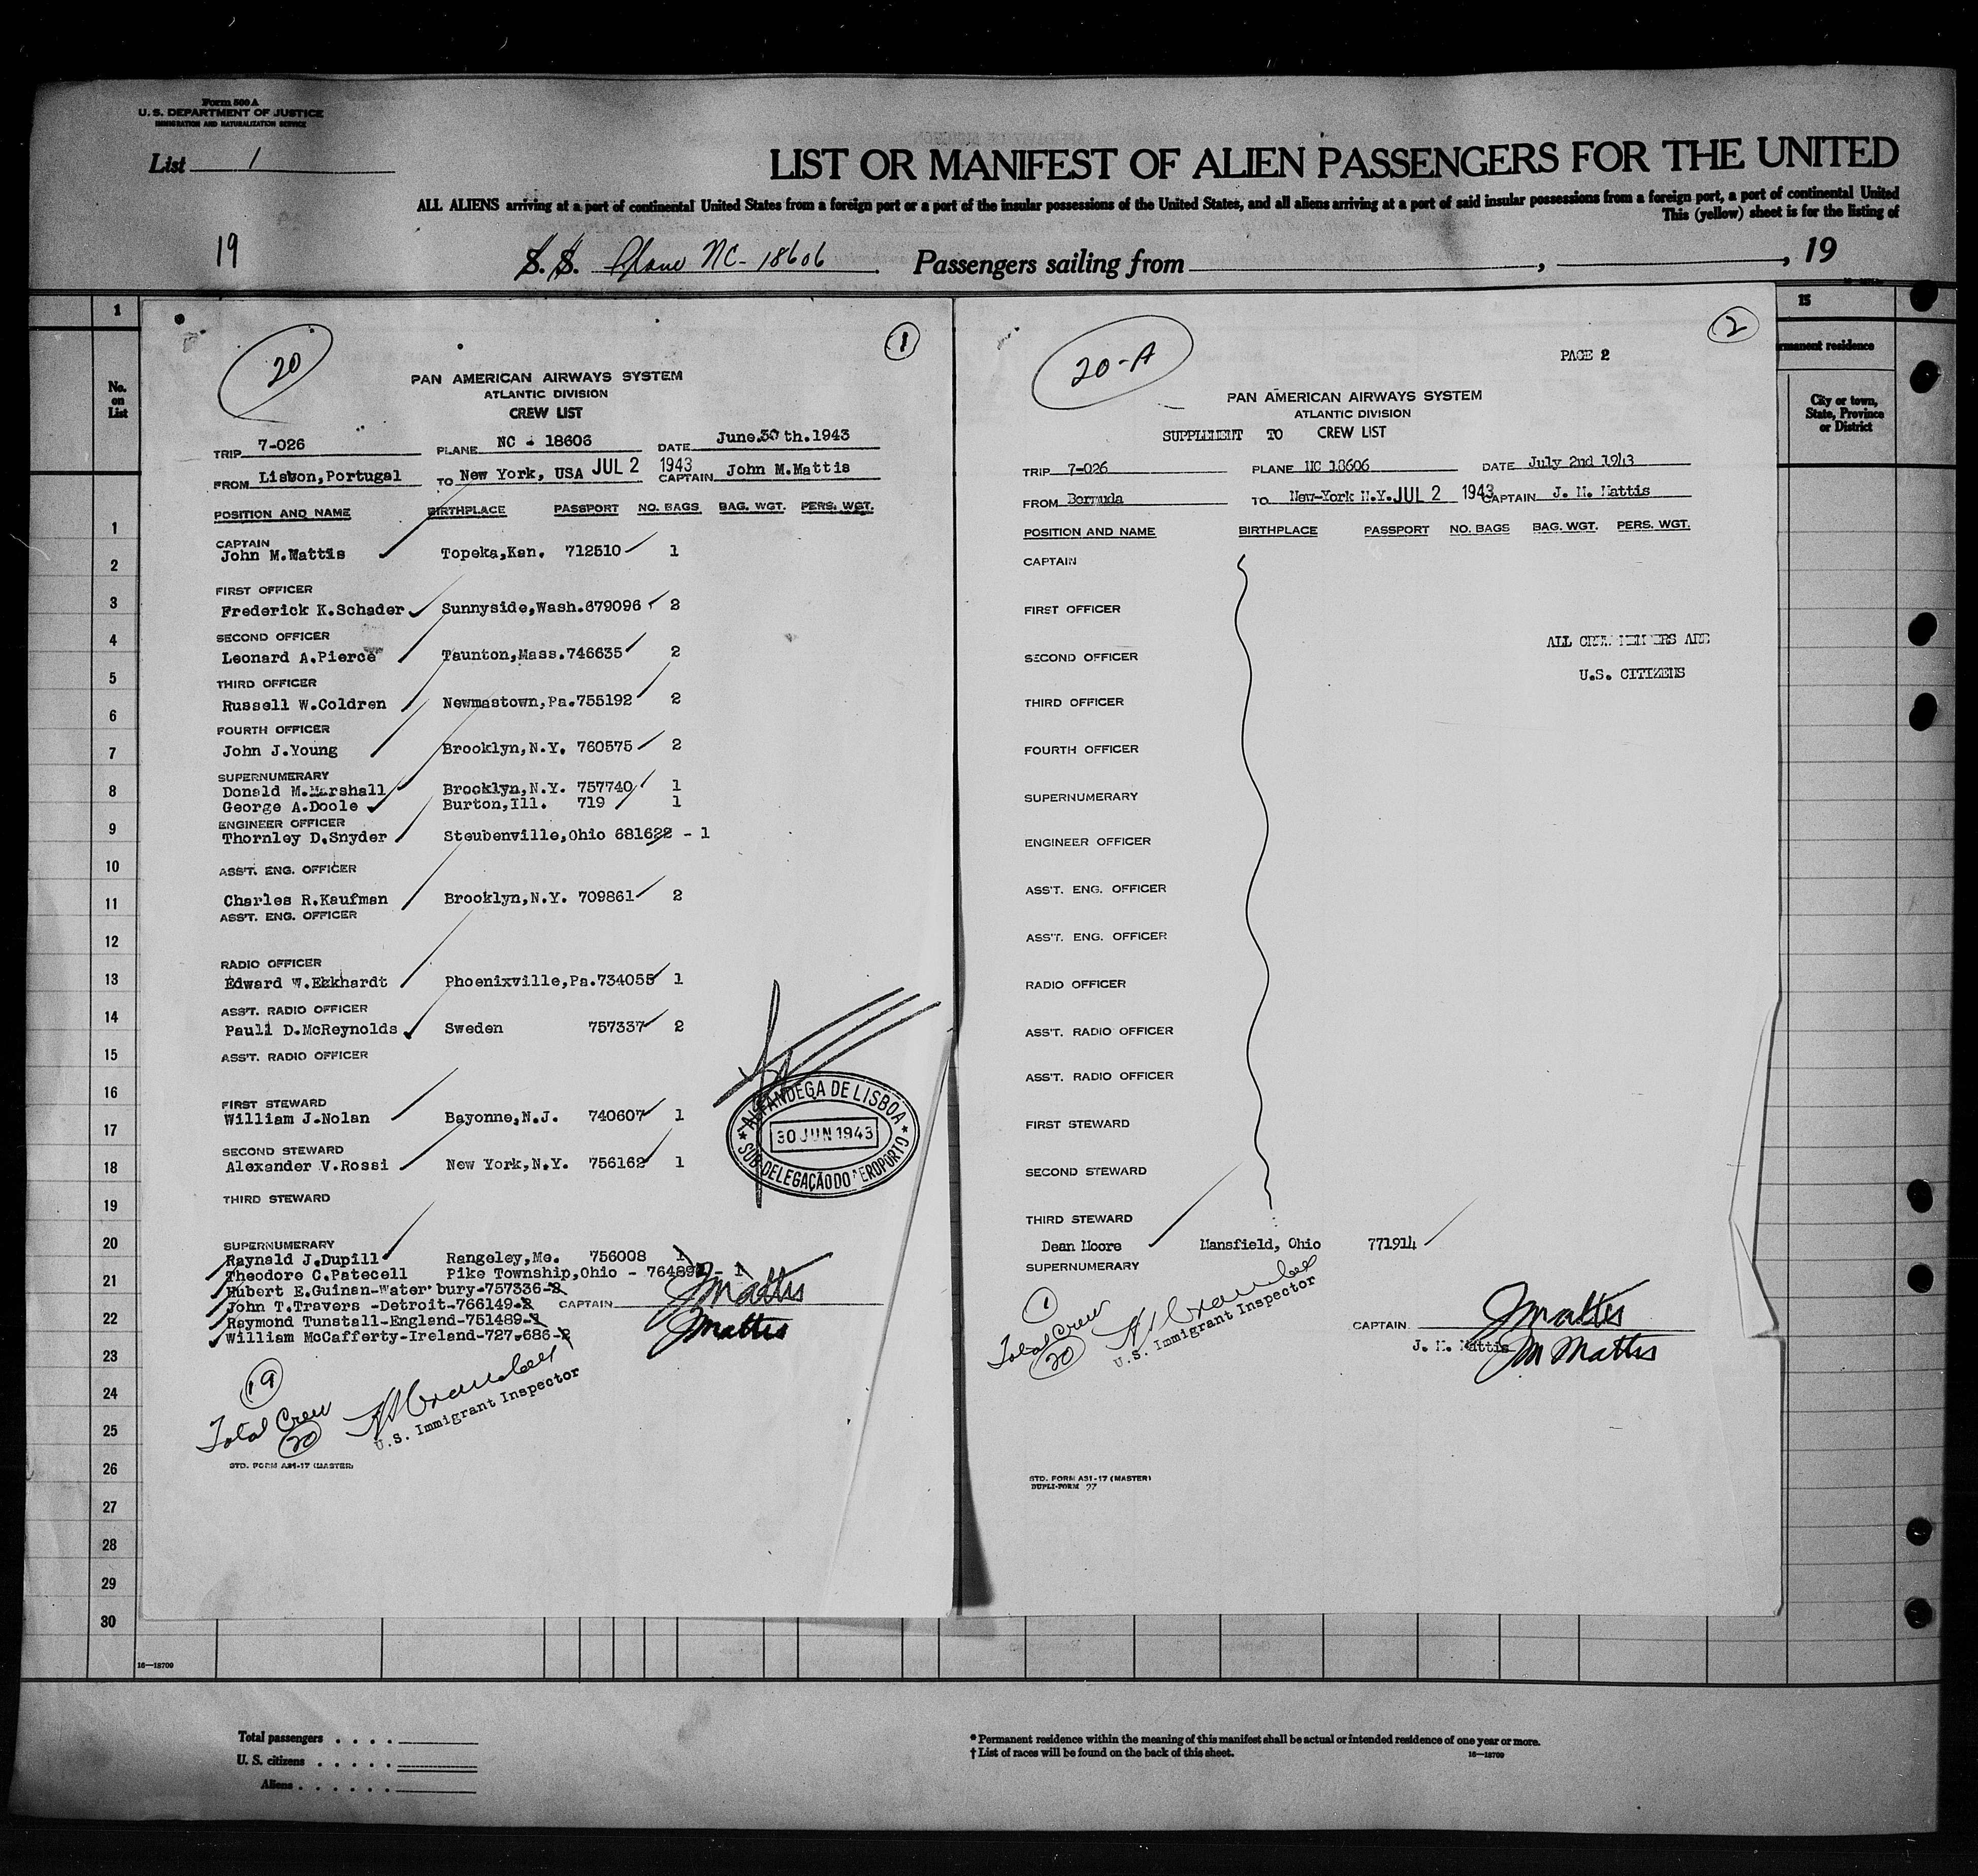 Form 500 A
U. S. DEPARTMENT OF JUSTICE
IMMIGRATION AND NATURALIZATION SERVICE
List 1
LIST OR MANIFEST OF ALIEN PASSENGERS FOR THE UNITED
ALL ALIENS arriving at a port of continental United States from a foreign port or a port of the insular possessions of the United States, and all aliens arriving at a port of said insular possessions from a foreign port, a port of continental United
This (yellow) sheet is for the listing of
19
S. S. Plane NC- 18606. Passengers sailing from , , 19
1
15
No. on List
rmanent residence
City or town, State, Province or District
1
2
3
4
5
6
7
8
9
10
11
12
13
14
15
16
17
18
19
20
21
22
23
24
25
26
27
28
29
30
20
1
PAN AMERICAN AIRWAYS SYSTEM
ATLANTIC DIVISION
CREW LIST
TRIP 7-026 PLANE NC - 18606 DATE June.30 th.1943
FROM Lisbon,Portugal TO New York, USA JUL 2 1943 CAPTAIN John M.Mattis
POSITION AND NAME BIRTHPLACE PASSPORT NO. BAGS BAG. WGT. PERS. WGT.
CAPTAIN
John M.Mattis Topeka,Kan. 712510 1
FIRST OFFICER
Frederick K.Schader Sunnyside,Wash.679096 2
SECOND OFFICER
Leonard A.Pierce Taunton,Mass.746635 2
THIRD OFFICER
Russell W.Coldren Newmastown,Pa.755192 2
FOURTH OFFICER
John J.Young Brooklyn,N.Y. 760575 2
SUPERNUMERARY
Donald M.Marshall Brooklyn,N.Y. 757740 1
George A.Doole Burton,Ill. 719 1
ENGINEER OFFICER
Thornley D.Snyder Steubenville,Ohio 681622 - 1
ASS'T. ENG. OFFICER
Charles R.Kaufman Brooklyn,N.Y. 709861 2
ASS'T. ENG. OFFICER
RADIO OFFICER
Edward W.Ekkhardt Phoenixville,Pa.734055 1
ASS'T. RADIO OFFICER
Pauli D.McReynolds Sweden 757337 2
ASS'T. RADIO OFFICER
FIRST STEWARD
William J.Nolan Bayonne,N.J. 740607 1
SECOND STEWARD
Alexander V.Rossi New York,N.Y. 756162 1
THIRD STEWARD
ALFANDEGA DE LISBOA
30 JUN 1943
SUB-DELEGAÇÃO DO AEROPORTO
SUPERNUMERARY
Raynald J.Dupill Rangeley,Me. 756008 1
Theodore C.Patecell Pike Township,Ohio - - 1
Hubert E.Guinan-Waterbury-757336-2
John T.Travers -Detroit-766149-2 CAPTAIN JMattis
Raymond Tunstall-England-751489-1
William McCafferty-Ireland-727.686-2 JMattis
19
Total Crew
20
U.S. Immigrant Inspector
STD. FORM A31-17 (MASTER)
20-A
PAGE 2
2
PAN AMERICAN AIRWAYS SYSTEM
ATLANTIC DIVISION
SUPPLEMENT TO CREW LIST
TRIP 7-026 PLANE NC 18606 DATE July 2nd 1943
FROM Bermuda TO New-York N.Y. JUL 2 1943 CAPTAIN J. M. Mattis
POSITION AND NAME BIRTHPLACE PASSPORT NO. BAGS BAG. WGT. PERS. WGT.
CAPTAIN
FIRST OFFICER
ALL CREW MEMBERS ARE
SECOND OFFICER
U.S. CITIZENS
THIRD OFFICER
FOURTH OFFICER
SUPERNUMERARY
ENGINEER OFFICER
ASS'T. ENG. OFFICER
ASS'T. ENG. OFFICER
RADIO OFFICER
ASS'T. RADIO OFFICER
ASS'T. RADIO OFFICER
FIRST STEWARD
SECOND STEWARD
THIRD STEWARD
Dean Moore Mansfield, Ohio 771914
SUPERNUMERARY
1
Total Crew
20
U.S. Immigrant Inspector
CAPTAIN. JMattis
J. M. Mattis JM Mattis
STD. FORM A31-17 (MASTER)
DUPLI-FORM 27
16—18709
Total passengers . . . .
U. S. citizens . . . . .
Aliens . . . . . .
* Permanent residence within the meaning of this manifest shall be actual or intended residence of one year or more.
† List of races will be found on the back of this sheet. 16—18709